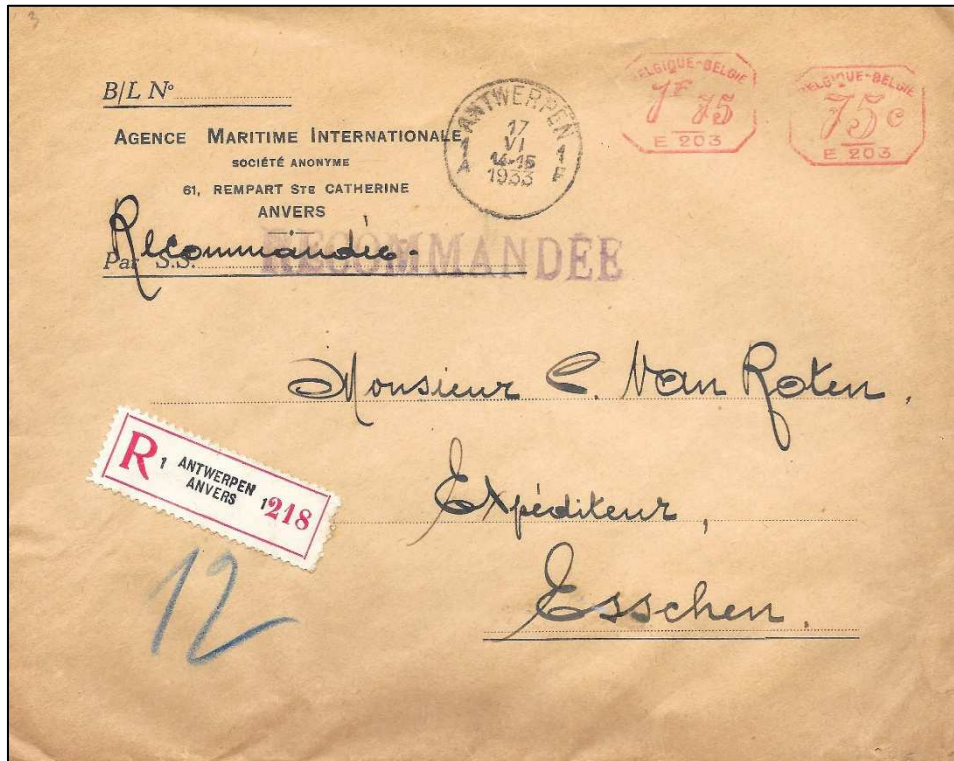 3
B/L Nº
AGENCE MARITIME INTERNATIONALE
SOCIÉTÉ ANONYME
61, REMPART STE CATHERINE
ANVERS
Par S.S.
Recommandée.
RECOMMANDÉE
ANTWERPEN
1 A
17
VI
14-15
1933
1 F
BELGIQUE-BELGIE
1F 75
E 203
BELGIQUE-BELGIE
75c
E 203
Monsieur C. Van Roten,
Expéditeur,
Esschen.
R 1 ANTWERPEN
ANVERS 1 218
12